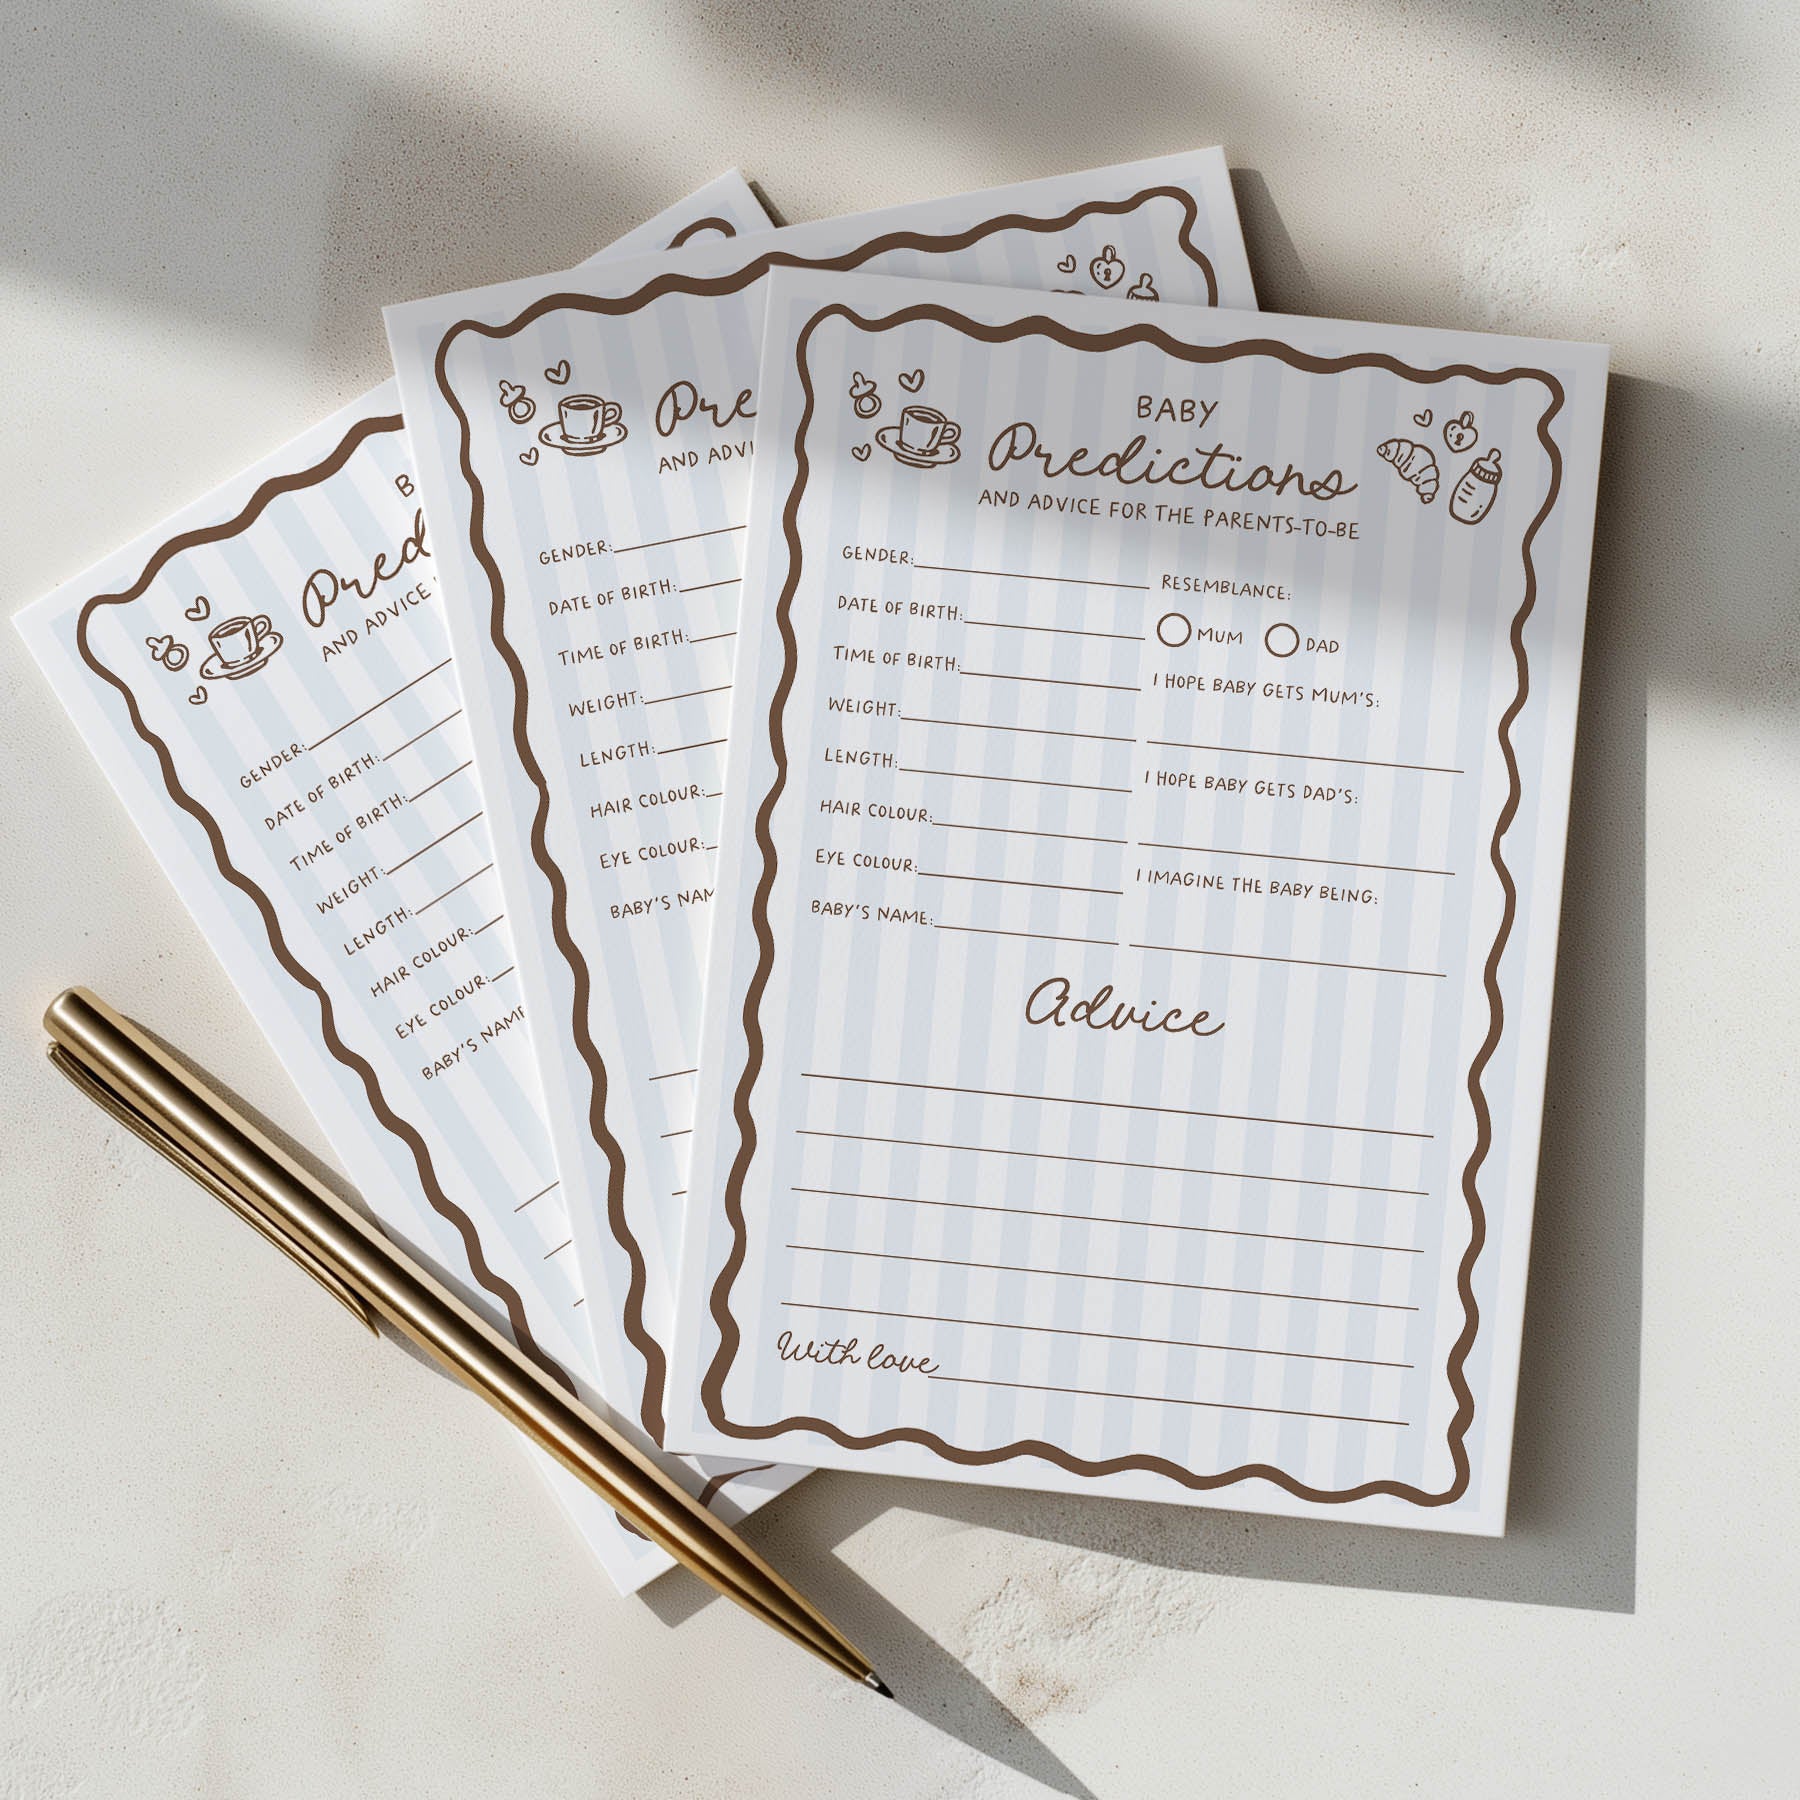 BABY
Predictions
AND ADVICE FOR THE PARENTS-TO-BE
GENDER:
DATE OF BIRTH:
TIME OF BIRTH:
WEIGHT:
LENGTH:
HAIR COLOUR:
EYE COLOUR:
BABY'S NAME:
RESEMBLANCE:
MUM DAD
I HOPE BABY GETS MUM'S:
I HOPE BABY GETS DAD'S:
I IMAGINE THE BABY BEING:
Advice
With love
Pre
AND ADVI
GENDER:
DATE OF BIRTH:
TIME OF BIRTH:
WEIGHT:
LENGTH:
HAIR COLOUR:
EYE COLOUR:
BABY'S NAM
B
Pred
AND ADVICE
GENDER:
DATE OF BIRTH:
TIME OF BIRTH:
WEIGHT:
LENGTH:
HAIR COLOUR:
EYE COLOUR:
BABY'S NAME